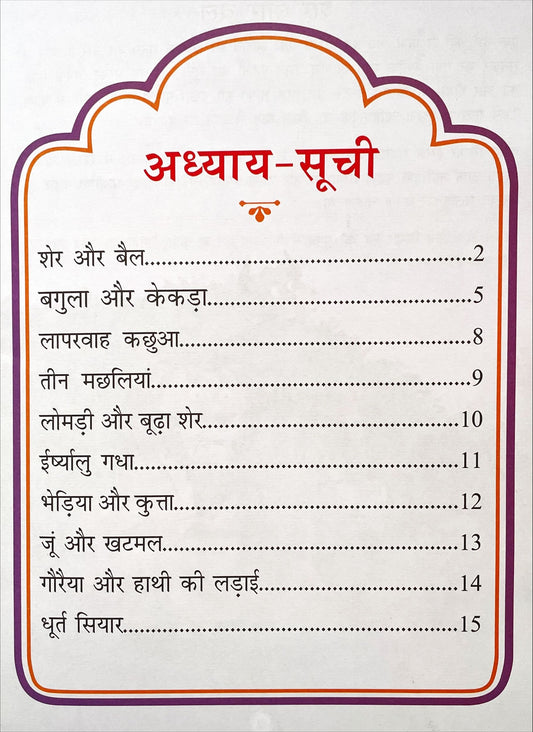 अध्याय-सूची
शेर और बैल.......................................................2
बगुला और केकड़ा.............................................5
लापरवाह कछुआ.................................................8
तीन मछलियां......................................................9
लोमड़ी और बूढ़ा शेर...........................................10
ईर्ष्यालु गधा......................................................11
भेड़िया और कुत्ता...............................................12
जूं और खटमल..................................................13
गौरैया और हाथी की लड़ाई..................................14
धूर्त सियार........................................................15